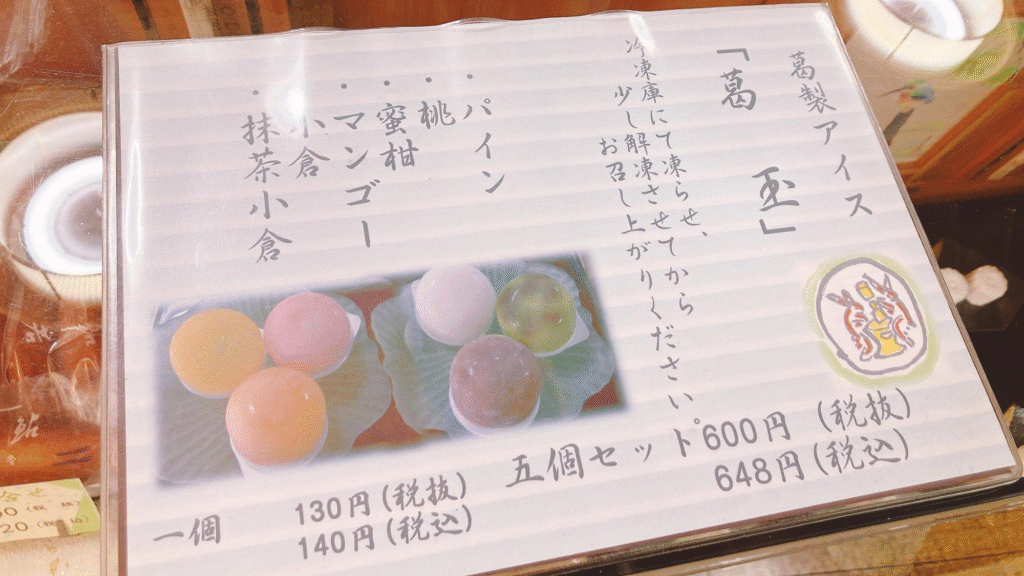 葛製アイス
「葛 玉」
冷凍庫にて凍らせ、
少し解凍させてから
お召し上がりください。
・パイン
・桃
・蜜柑
・マンゴー
・小倉
・抹茶小倉
一個
130円(税抜)
140円(税込)
五個セット
600円(税抜)
648円(税込)